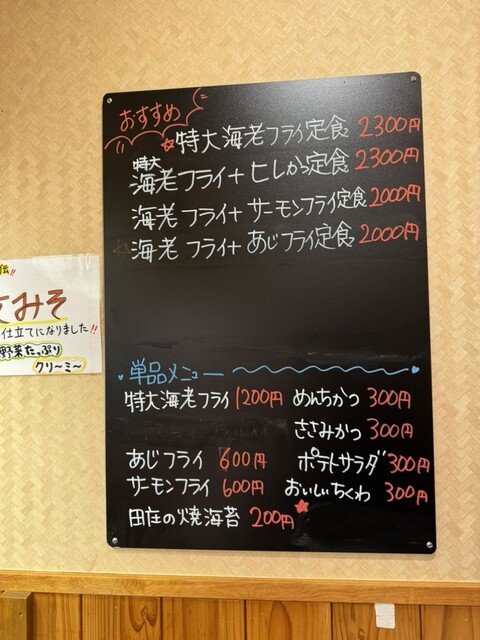 おすすめ
特大海老フライ定食 2300円
特大
海老フライ+ヒレから定食 2300円
海老フライ+サーモンフライ定食 2000円
海老フライ+あじフライ定食 2000円
単品メニュー
特大海老フライ 1200円
あじフライ 600円
サーモンフライ 600円
田庄の焼海苔 200円
めんちかつ 300円
ささみかつ 300円
ポテトサラダ 300円
おいしいちくわ 300円
伝!!
みそ
仕立てになりました!!
野菜たっぷり
クリ〜ミ〜